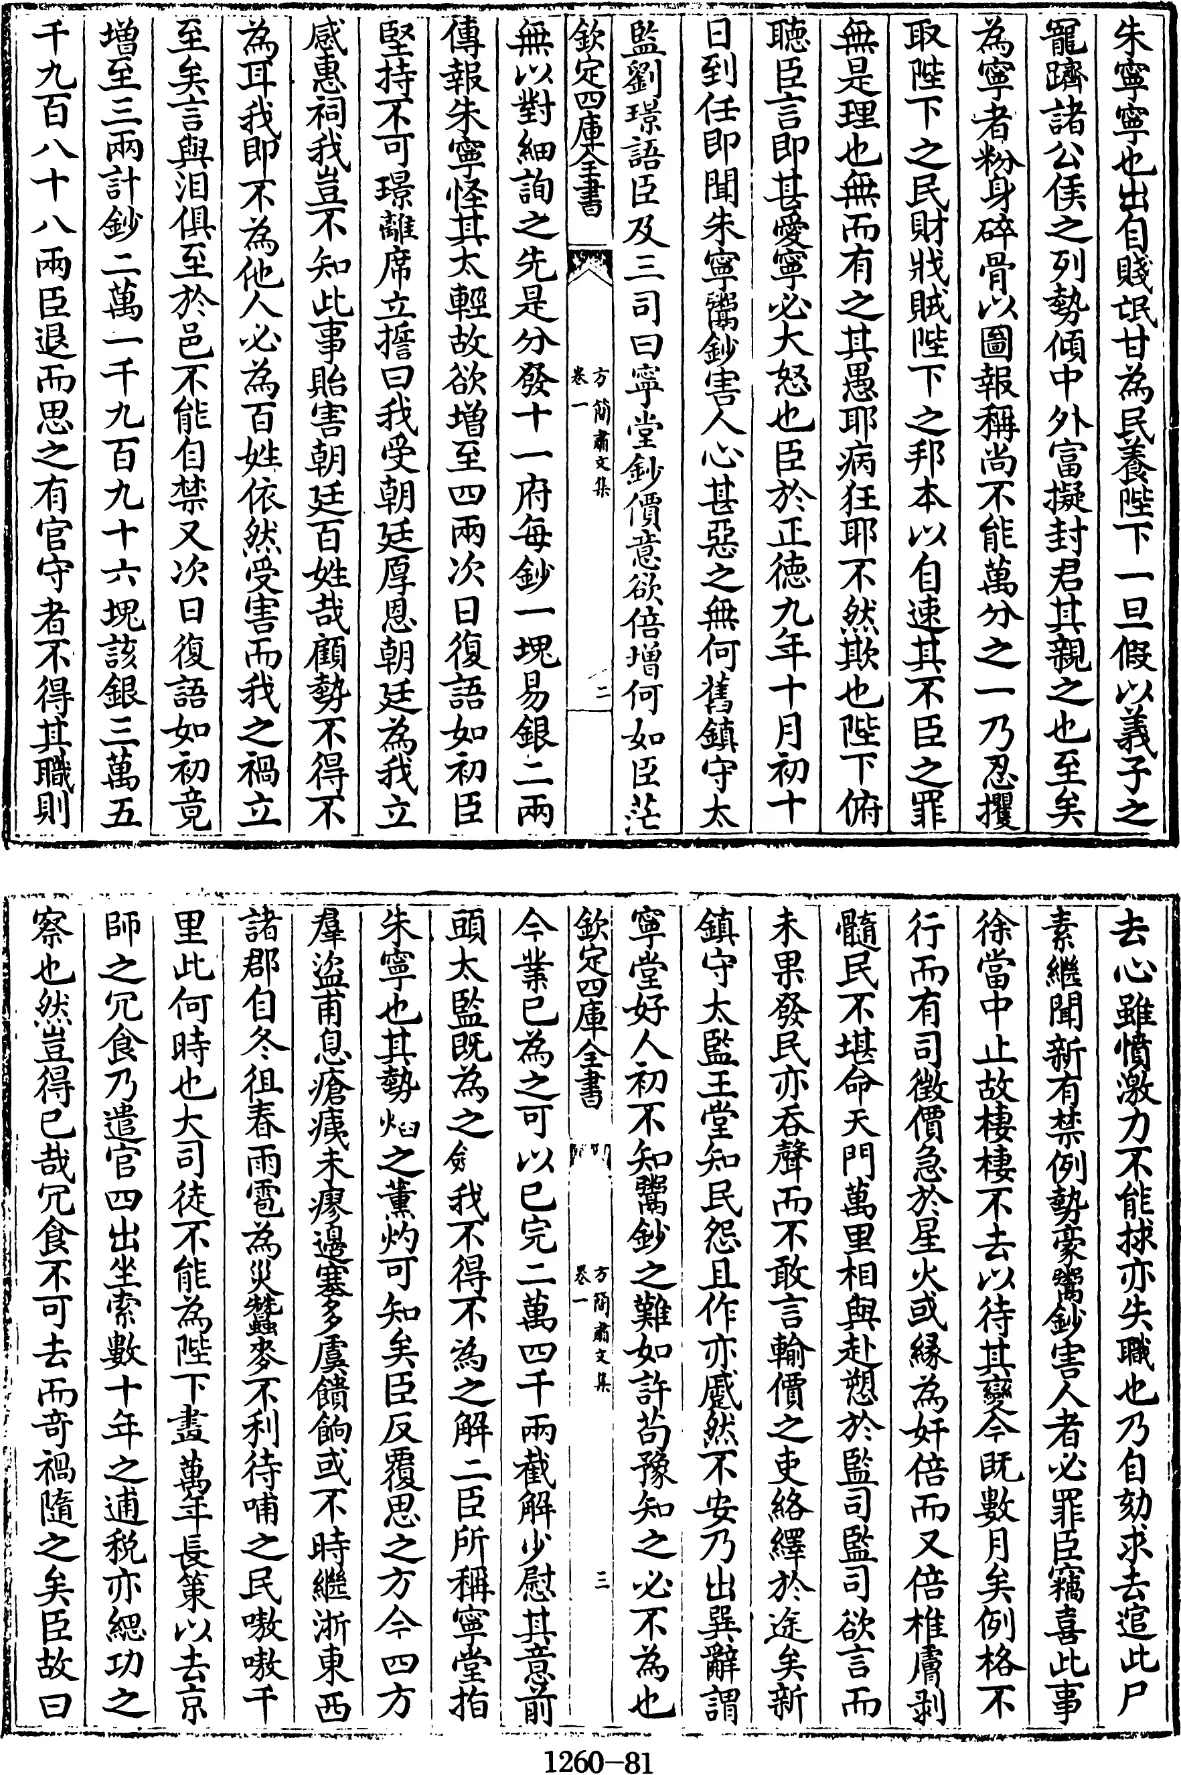 朱寧寧也出自賤氓甘為民養陛下一旦假以義子之
寵躋諸公侯之列勢傾中外富擬封君其親之也至矣
為寧者粉身碎骨以圖報稱尚不能萬分之一乃忍攫
取陛下之民財戕賊陛下之邦本以自速其不臣之罪
無是理也無而有之其愚耶病狂耶不然欺也陛下俯
聽臣言即甚愛寧必大怒也臣於正德九年十月初十
日到任即聞朱寧鬻鈔害人心甚惡之無何舊鎮守太
監劉璟語臣及三司曰寧堂鈔價意欲倍增何如臣茫
欽定四庫全書
方簡肅文集
卷一
二
無以對細詢之先是分發十一府每鈔一塊易銀二兩
傳報朱寧怪其太輕故欲增至四兩次日復語如初臣
堅持不可璟離席立誓曰我受朝廷厚恩朝廷為我立
感惠祠我豈不知此事貽害朝廷百姓哉顧勢不得不
為耳我即不為他人必為百姓依然受害而我之禍立
至矣言與泪俱至於邑不能自禁又次日復語如初竟
增至三兩計鈔二萬一千九百九十六塊該銀三萬五
千九百八十八兩臣退而思之有官守者不得其職則
去心雖憤激力不能捄亦失職也乃自劾求去逭此尸
素繼聞新有禁例勢豪鬻鈔害人者必罪臣竊喜此事
徐當中止故棲棲不去以待其變今既數月矣例格不
行而有司徵價急於星火或縁為奸倍而又倍椎膚剥
髓民不堪命天門萬里相與赴愬於監司監司欲言而
未果發民亦吞聲而不敢言輸價之吏絡繹於途矣新
鎮守太監王堂知民怨且作亦慼然不安乃出巽辭謂
寧堂好人初不知鬻鈔之難如許茍豫知之必不為也
欽定四庫全書
方簡肅文集
卷一
三
今業已為之可以已完二萬四千兩截解少慰其意前
頭太監既為之僉我不得不為之解二臣所稱寧堂指
朱寧也其勢焰之薰灼可知矣臣反覆思之方今四方
羣盜甫息瘡痍未瘳邉塞多虞饋餉或不時繼浙東西
諸郡自冬徂春雨雹為災蠶麥不利待哺之民嗷嗷千
里此何時也大司徒不能為陛下畫萬年長策以去京
師之冗食乃遣官四出坐索數十年之逋税亦緦功之
察也然豈得已哉冗食不可去而奇禍隨之矣臣故曰
1260-81